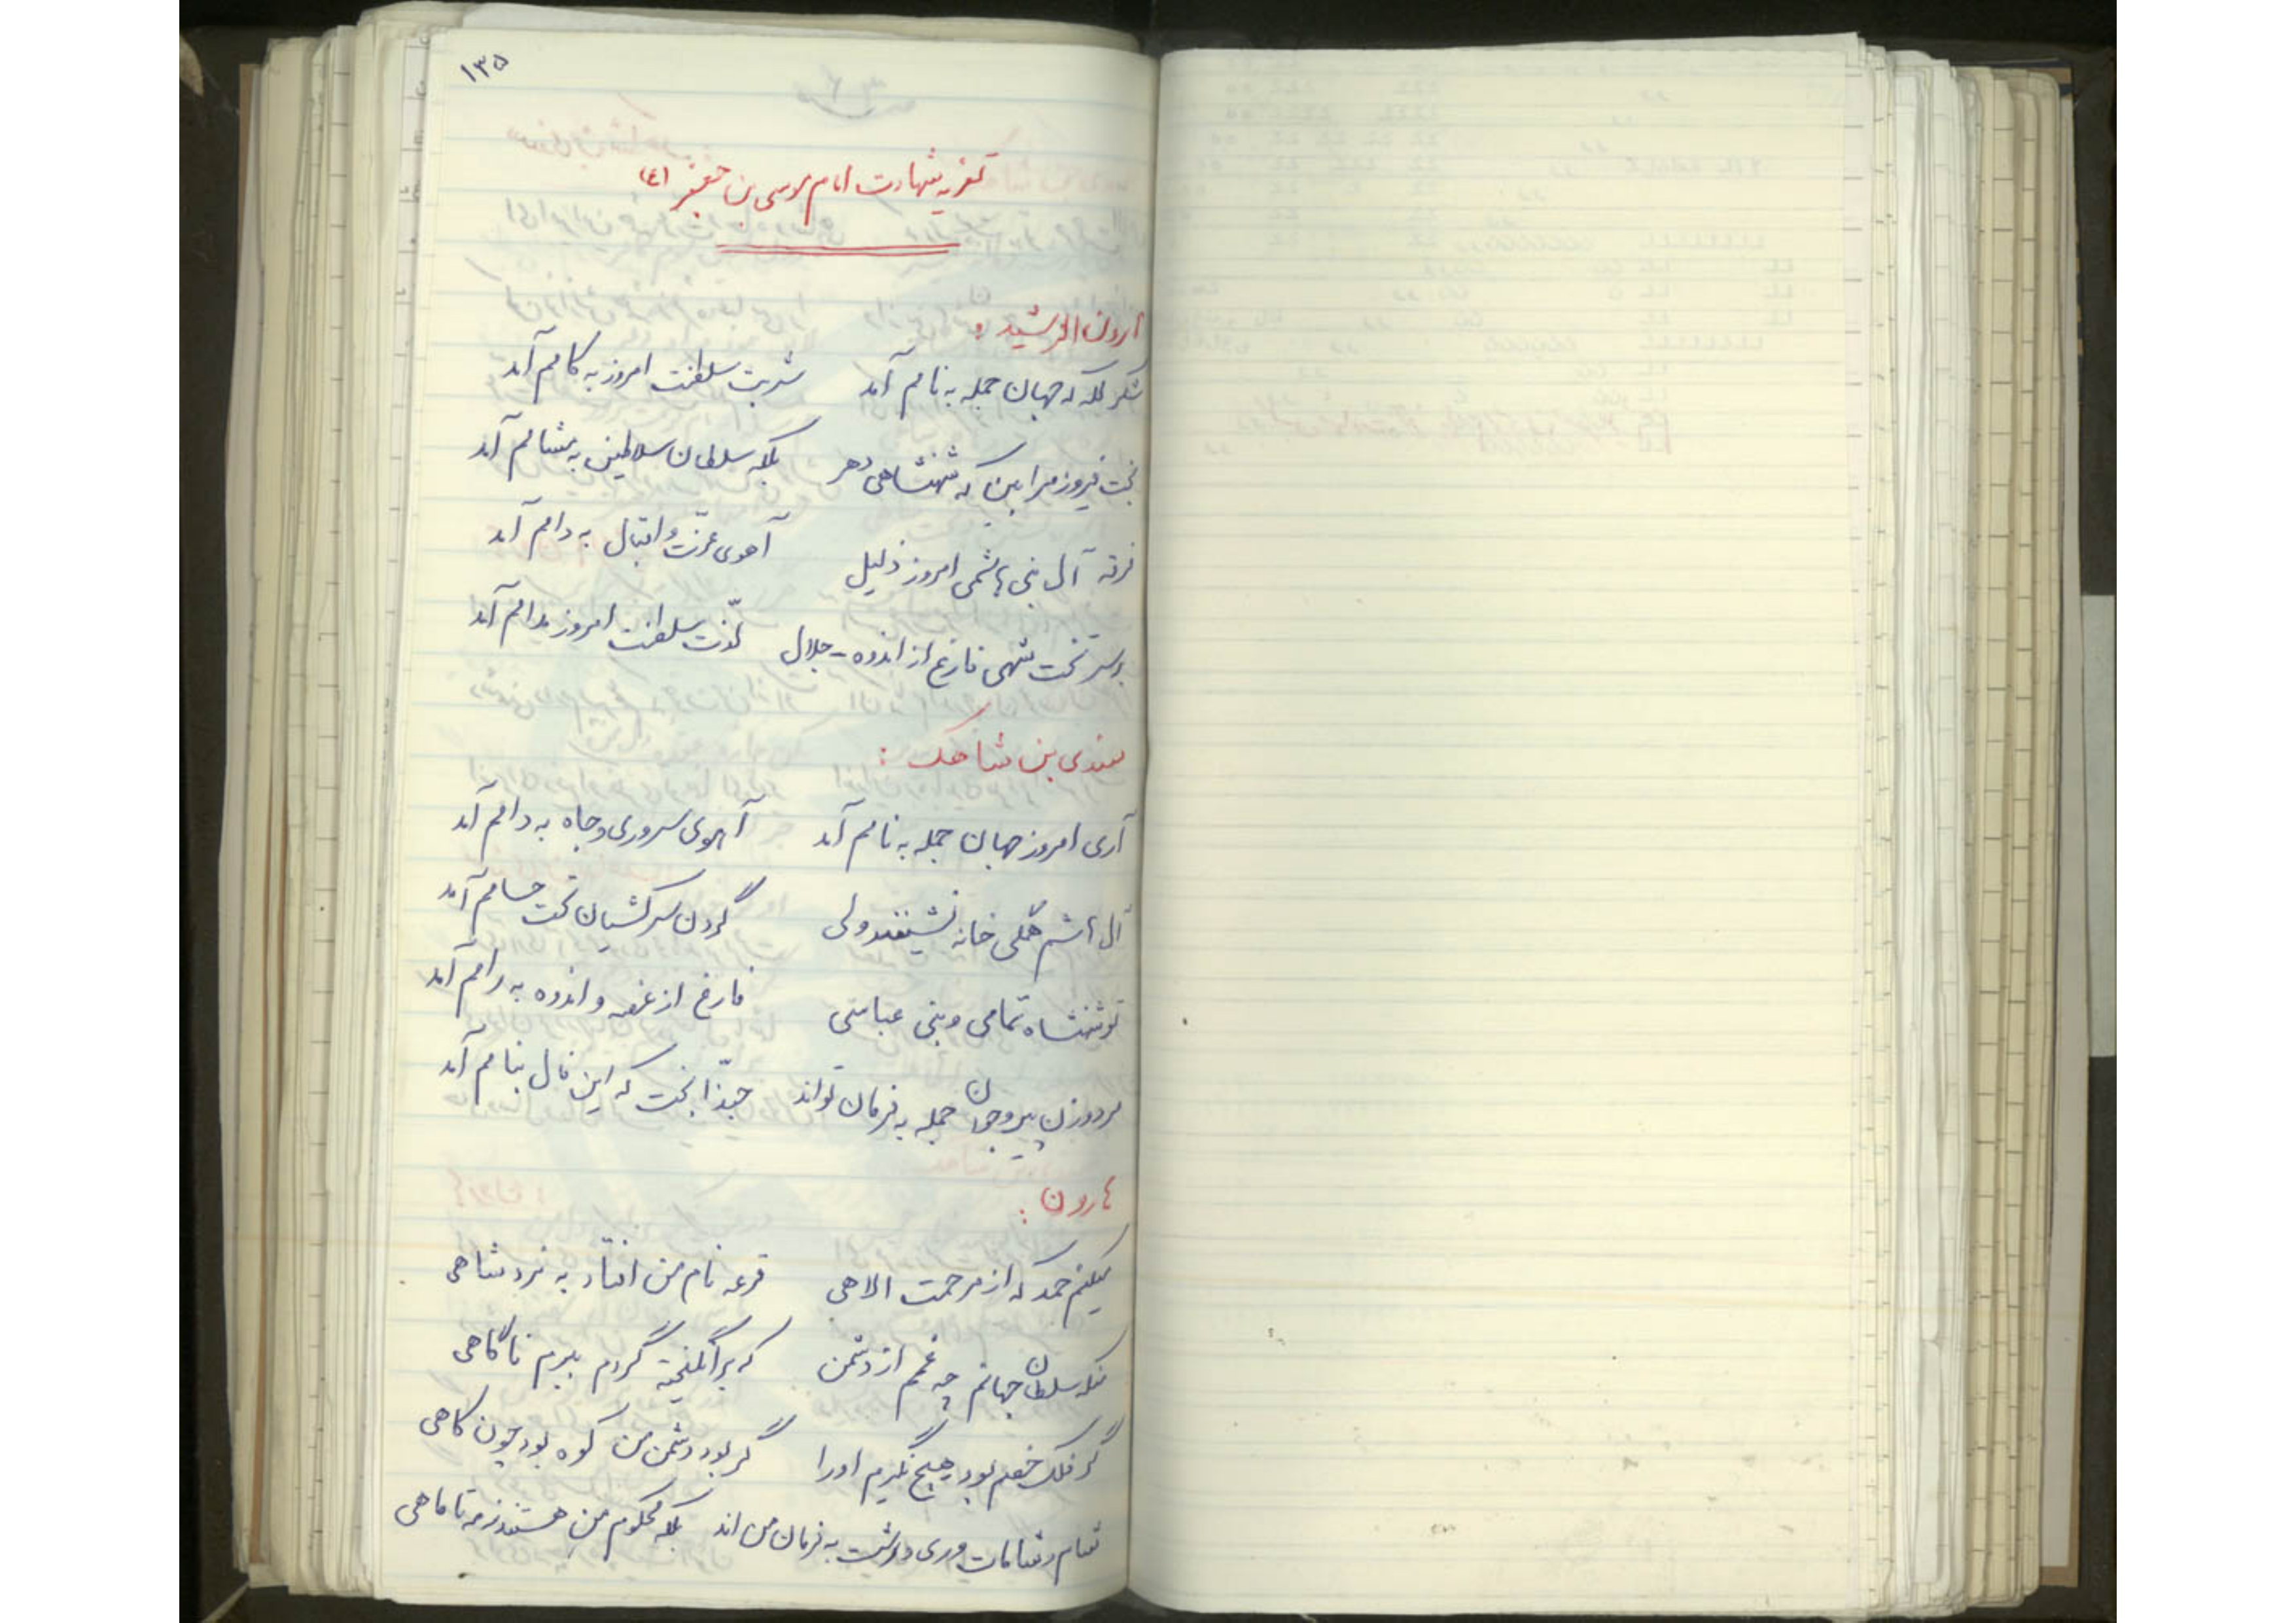 ۱۳۵
تعزیه شهادت امام موسی بن جعفر (ع)
هارون الرشید :
شکر لله که جهان جمله به نامم آمد شربت سلطنت امروز به کامم آمد
بخت فیروز مرا بین که شهنشاهی دهر بلکه سلطان سلاطین به مشامم آمد
فرقه آل بنی هاشمی امروز ذلیل آهوی عزّت و اقبال به دامم آمد
بر سر تخت شهی فارغ از اندوه جلال لذّت سلطنت امروز مدامم آمد
سندی بن شاهک :
آری امروز جهان جمله به نامم آمد آهوی سروری و جاه به دامم آمد
آل هاشم همگی خانه نشینند ولی گردن سرکشیان تحت حسامم آمد
تو شهنشاه تمامی و بنی عباسی فارغ از غصه و اندوه به رامم آمد
مرد و زن پیر و جوان جمله به فرمان تواند حبّذا بخت که این فال بنامم آمد
هارون :
میکنم حمد که از مرحمت الاهی قرعه نام من افتاد به نرد شاهی
منکه سلطان جهانم چه غم از دشمن که برانگیخته گردم ببرم ناگاهی
گر فلک خصم بود هیچ نگیرم او را گر بود دشمن من کوه بود چون کاهی
شام و شامات وری و رشت به فرمان من اند بلکه محکوم من هستند ز مه تا ماهی